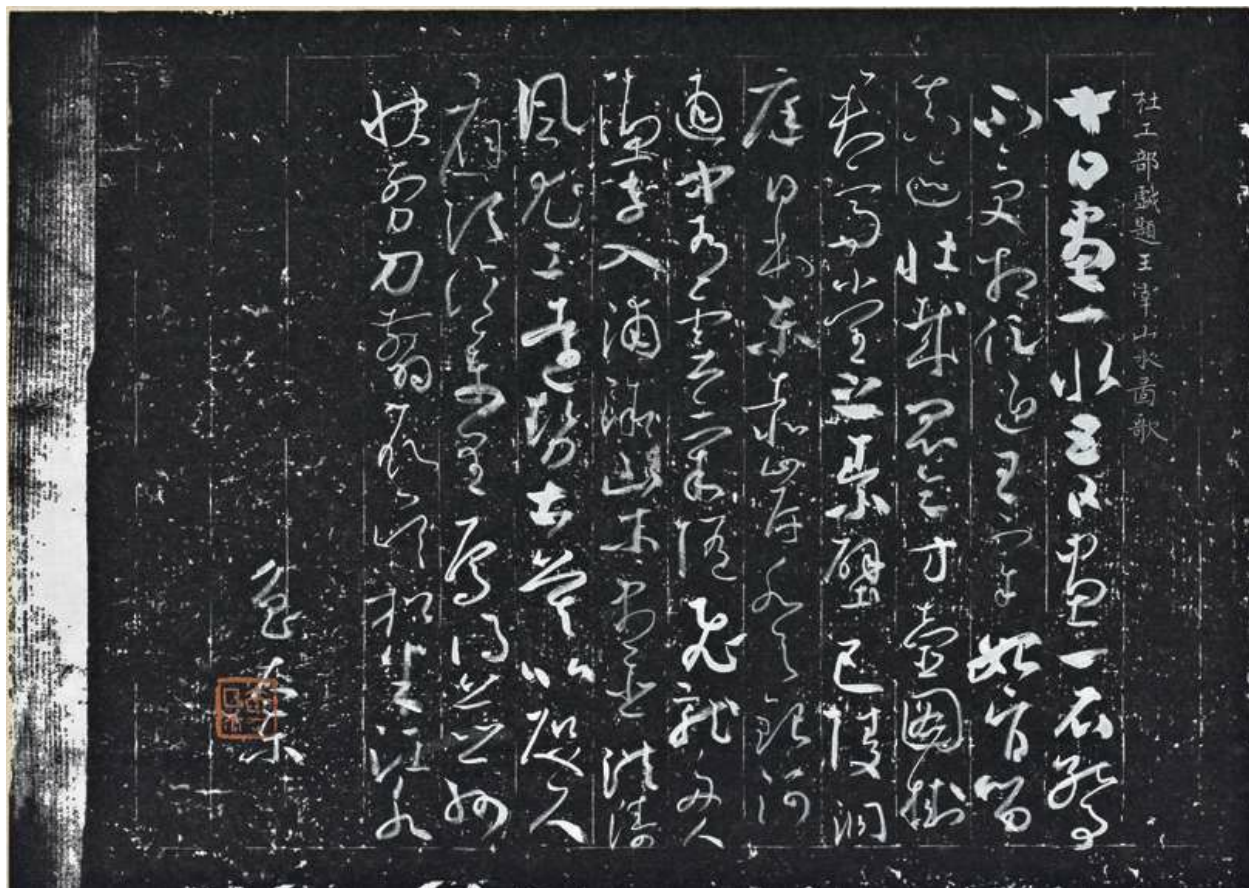 杜工部戲題王宰山水啚歌
十日畫一水五日畫一石能事
不受相促迫王宰始肯留
真迹壯哉崑崙方壺圖掛
君高堂之素壁巴陵洞
庭日本東赤岸水與銀河
通中有雲氣隨飛龍舟人
漁子入浦漵山木盡亞洪濤
風尤工遠勢古莫比咫尺
應須論萬里焉得并州
快剪刀翦取吳松半江水